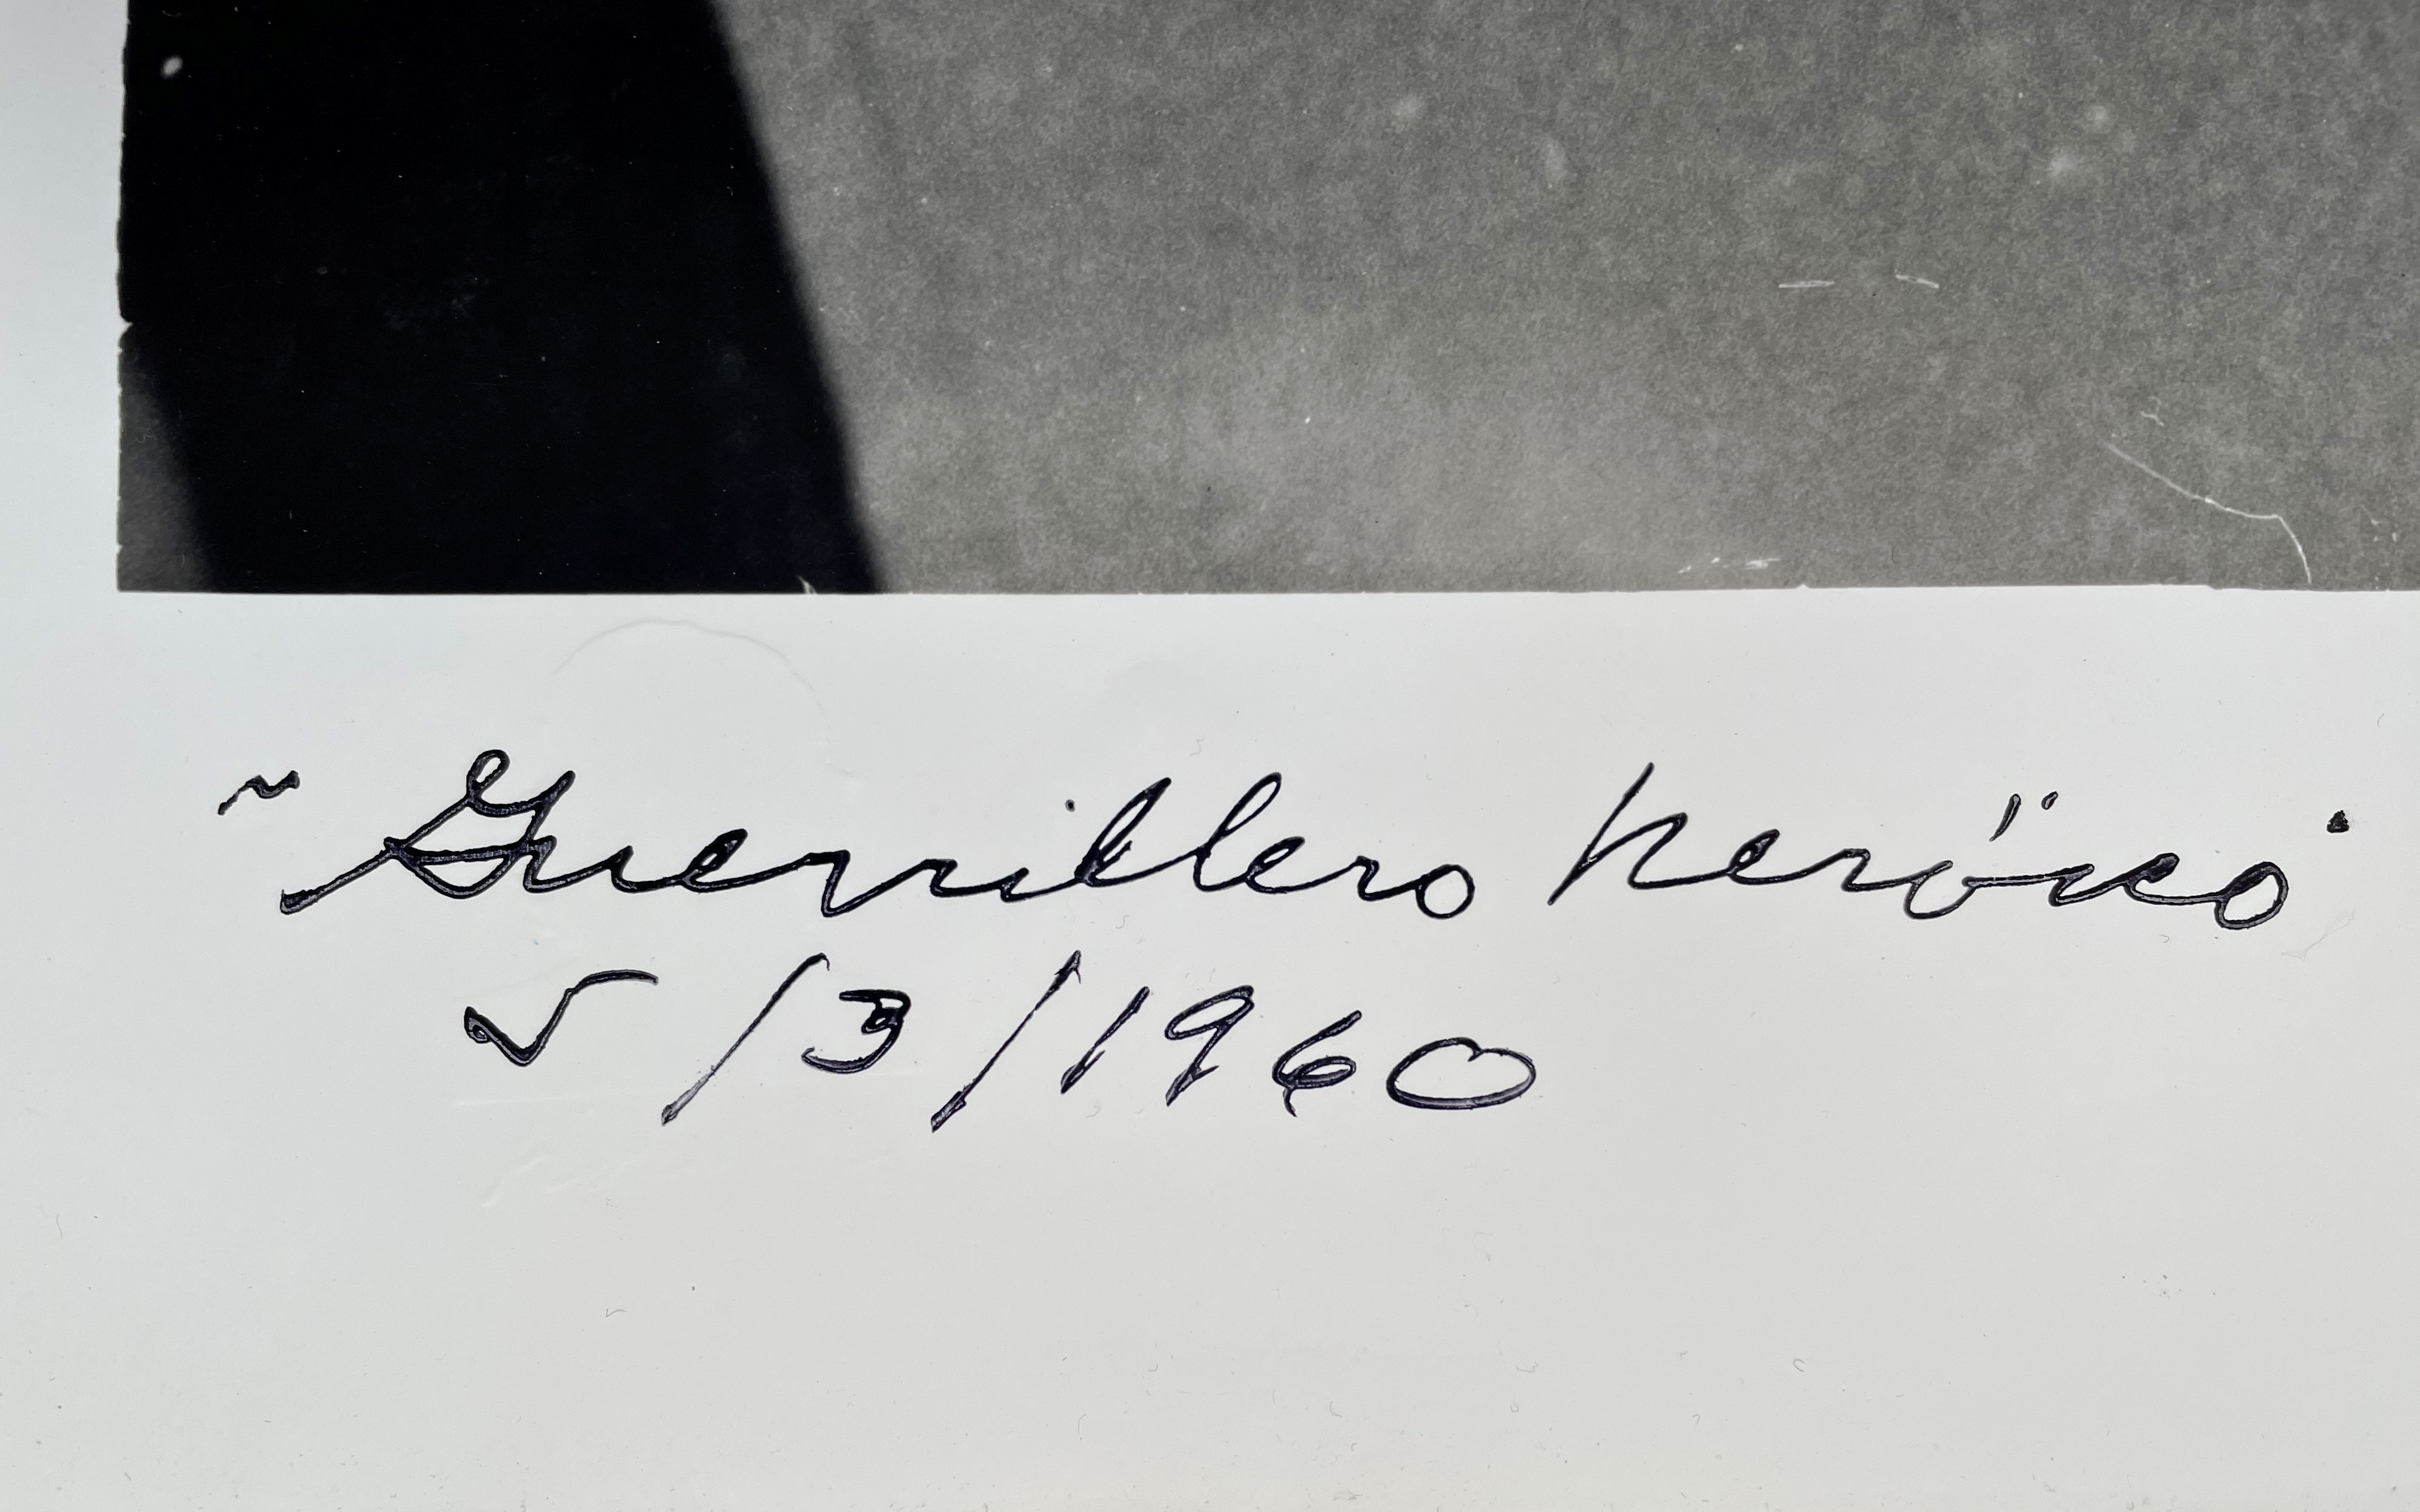 "Guerrillero heróico"
5/3/1960